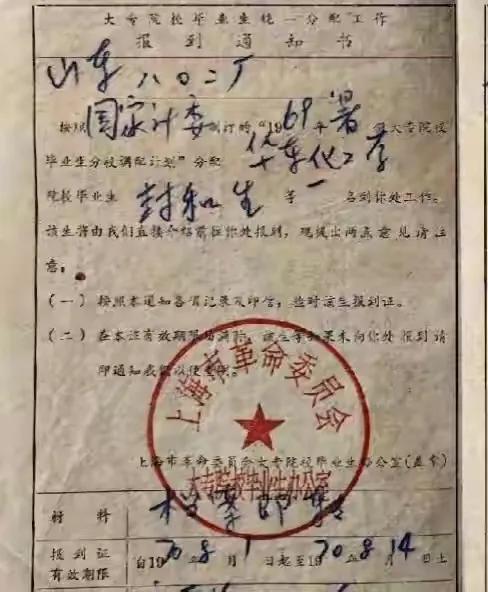 大专院校毕业生统一分配工作
报到通知书
山东八〇二厂
按照国家计委制订的“1969年署大专院校
毕业生分校调配计划”分配华东化工学
院校毕业生封和生等一名到你处工作。
该生将由我们直接介绍前往你处报到，现提出两点意见请注
意：
（一）按照本通知各项记录及印信，验对该生报到证。
（二）在本证有效期限届满后，该生等如果未向你处报到请
即通知我们以便查询。
上海市革命委员会
大专院校毕业生办公室
上海市革命委员会大专院校毕业生办公室(盖章)
材料
档案即转
报到证
有效期限
自1970年8月1日起至1970年8月14日止